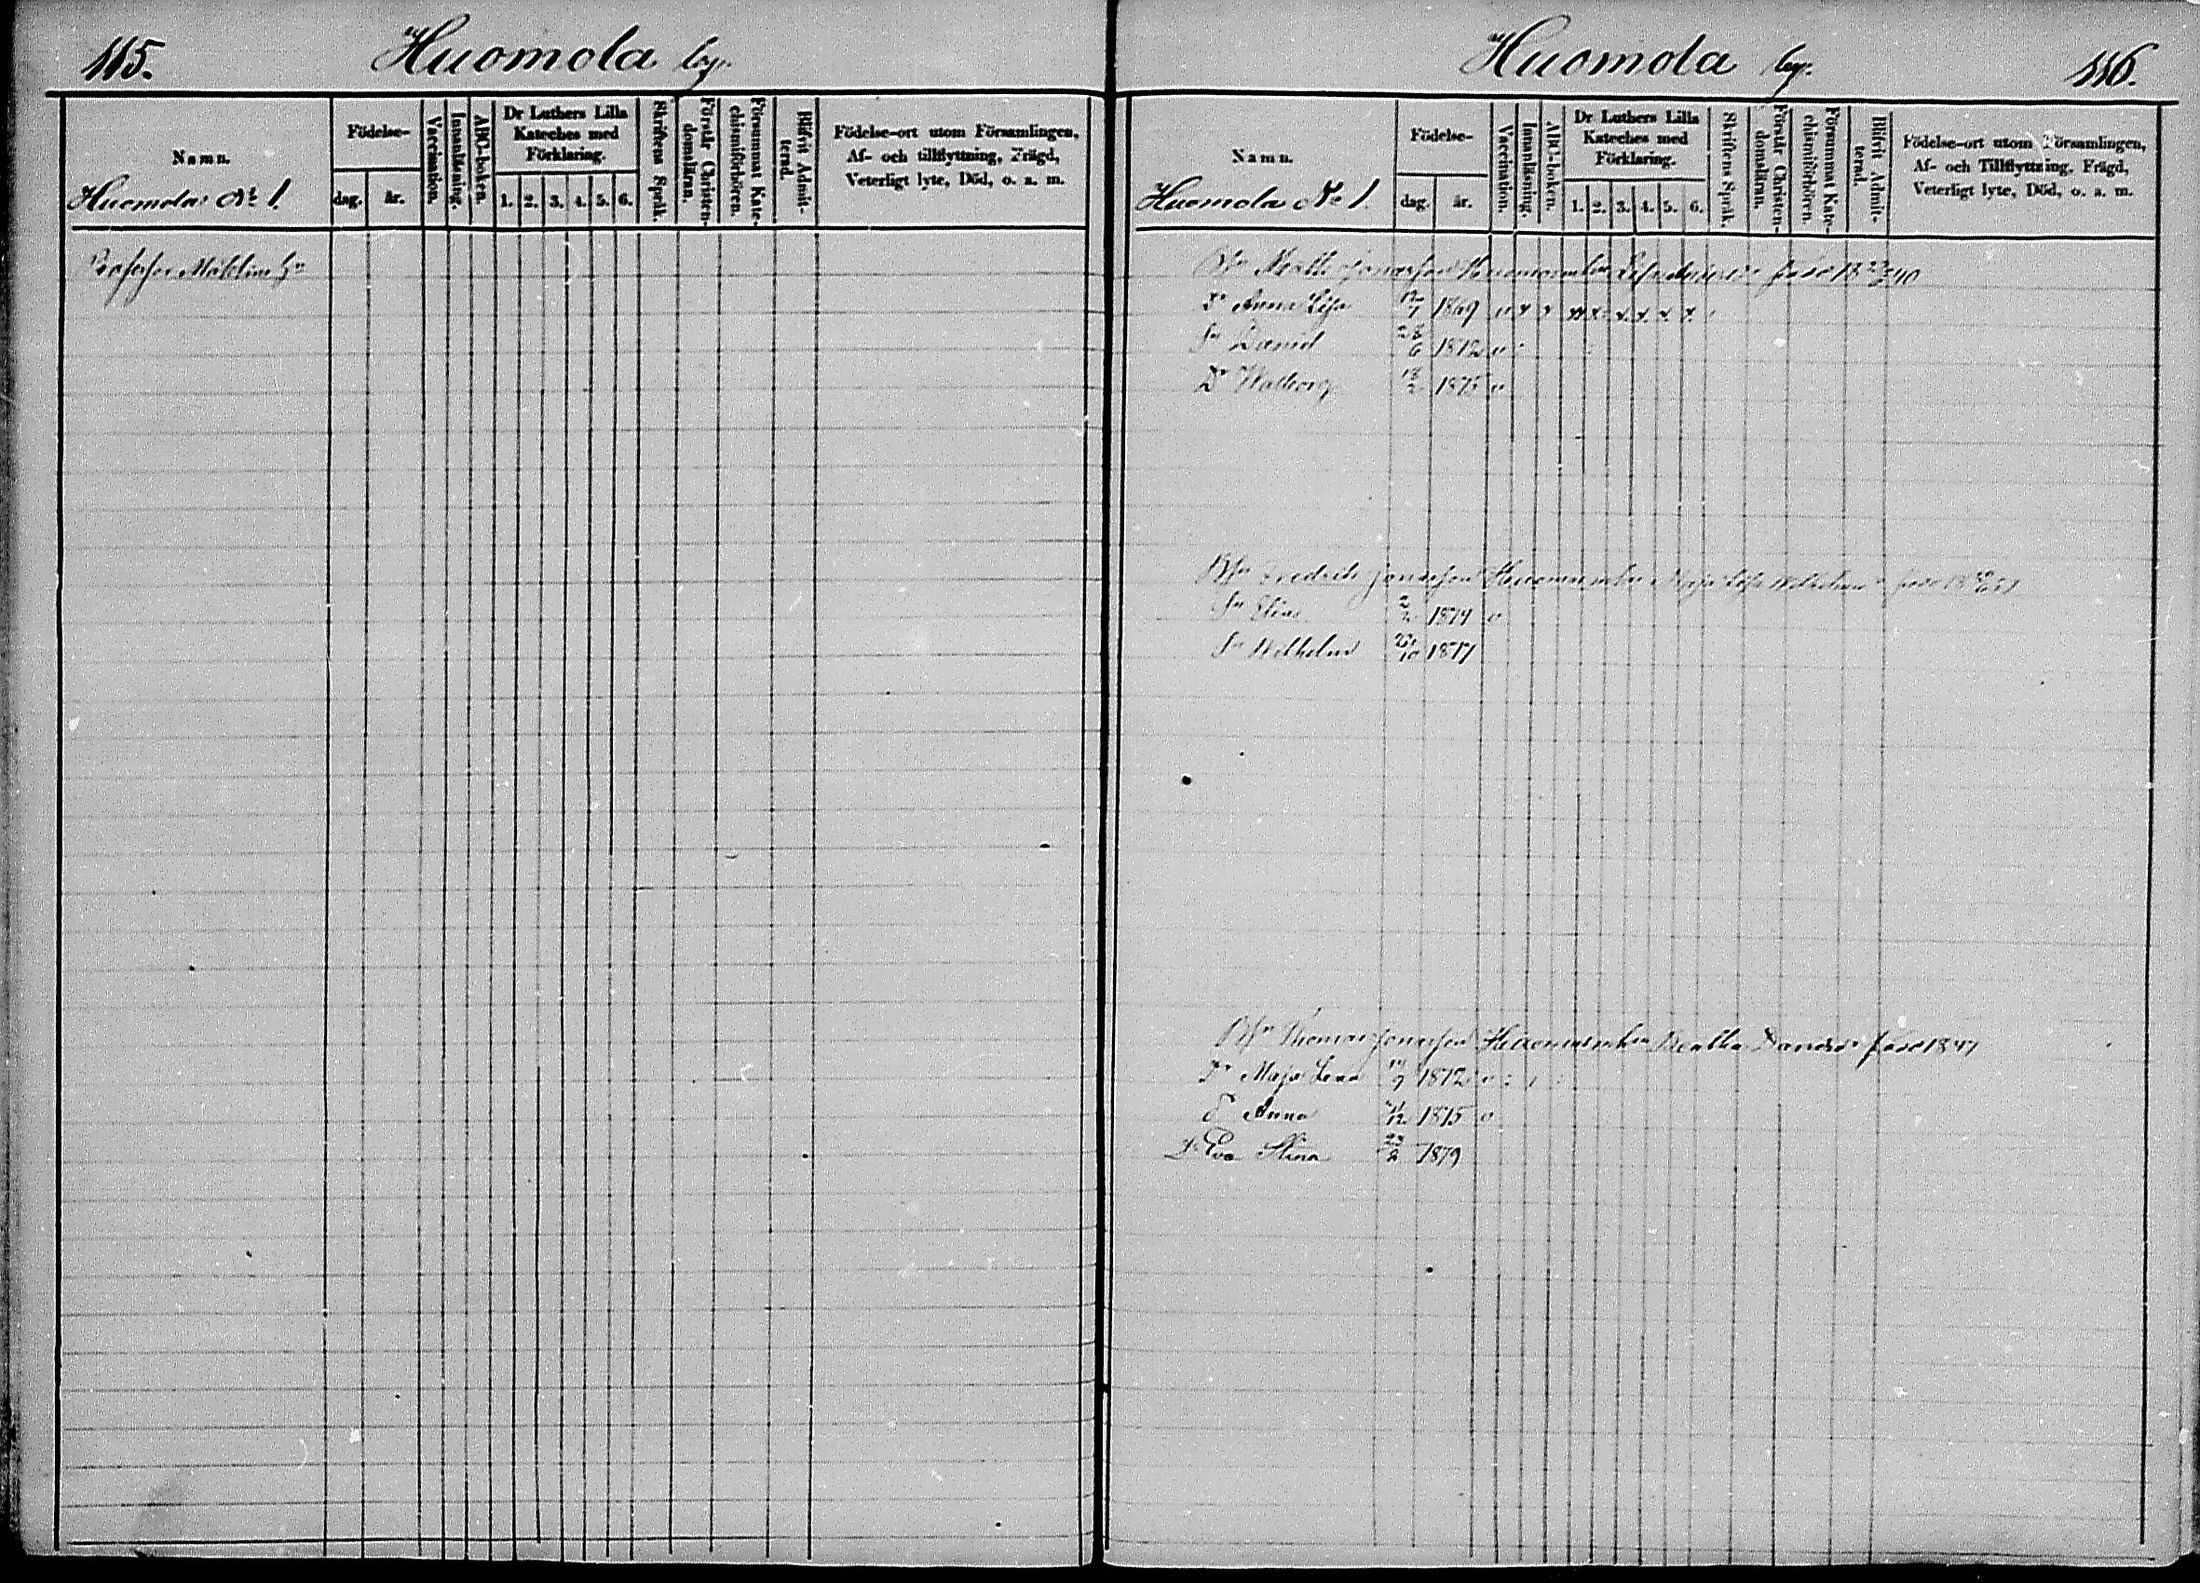 115.
Huomola by.
Namn.
Huomola No 1.
Födelse-
dag. år.
Vaccination.
Innanläsning.
ABC-boken.
Dr Luthers Lilla
Kateches med
Förklaring.
1. 2. 3. 4. 5. 6.
Skriftens Språk.
Förstår Christen-
domsläran.
Försummat Kate-
chismiförhören.
Blifvit Admit-
terad.
Födelse-ort utom Församlingen,
Af- och tillflyttning, Frägd,
Veterligt lyte, Död, o. a. m.
Professor Mäklin
Huomola by.
116.
Namn.
Huomola No 1.
Födelse-
dag. år.
Vaccination.
Innanläsning.
ABC-boken.
Dr Luthers Lilla
Kateches med
Förklaring.
1. 2. 3. 4. 5. 6.
Skriftens Språk.
Förstår Christen-
domsläran.
Försummat Kate-
chismiförhören.
Blifvit Admit-
terad.
Födelse-ort utom Församlingen,
Af- och Tillflyttning, Frägd,
Veterligt lyte, Död, o. a. m.
Matts Jonasson
Dr Anna Lisa 1869
Sn Daniel 28/6 1872
Dr Walborg 1875
Fredrik Jonasson Maja Lisa
Sn Elias 1874
Sn Wilhelm 1877
Thomas Jonasson
Dr Maja Lena 1872
Anna 1875
Dr Eva Stina 1879